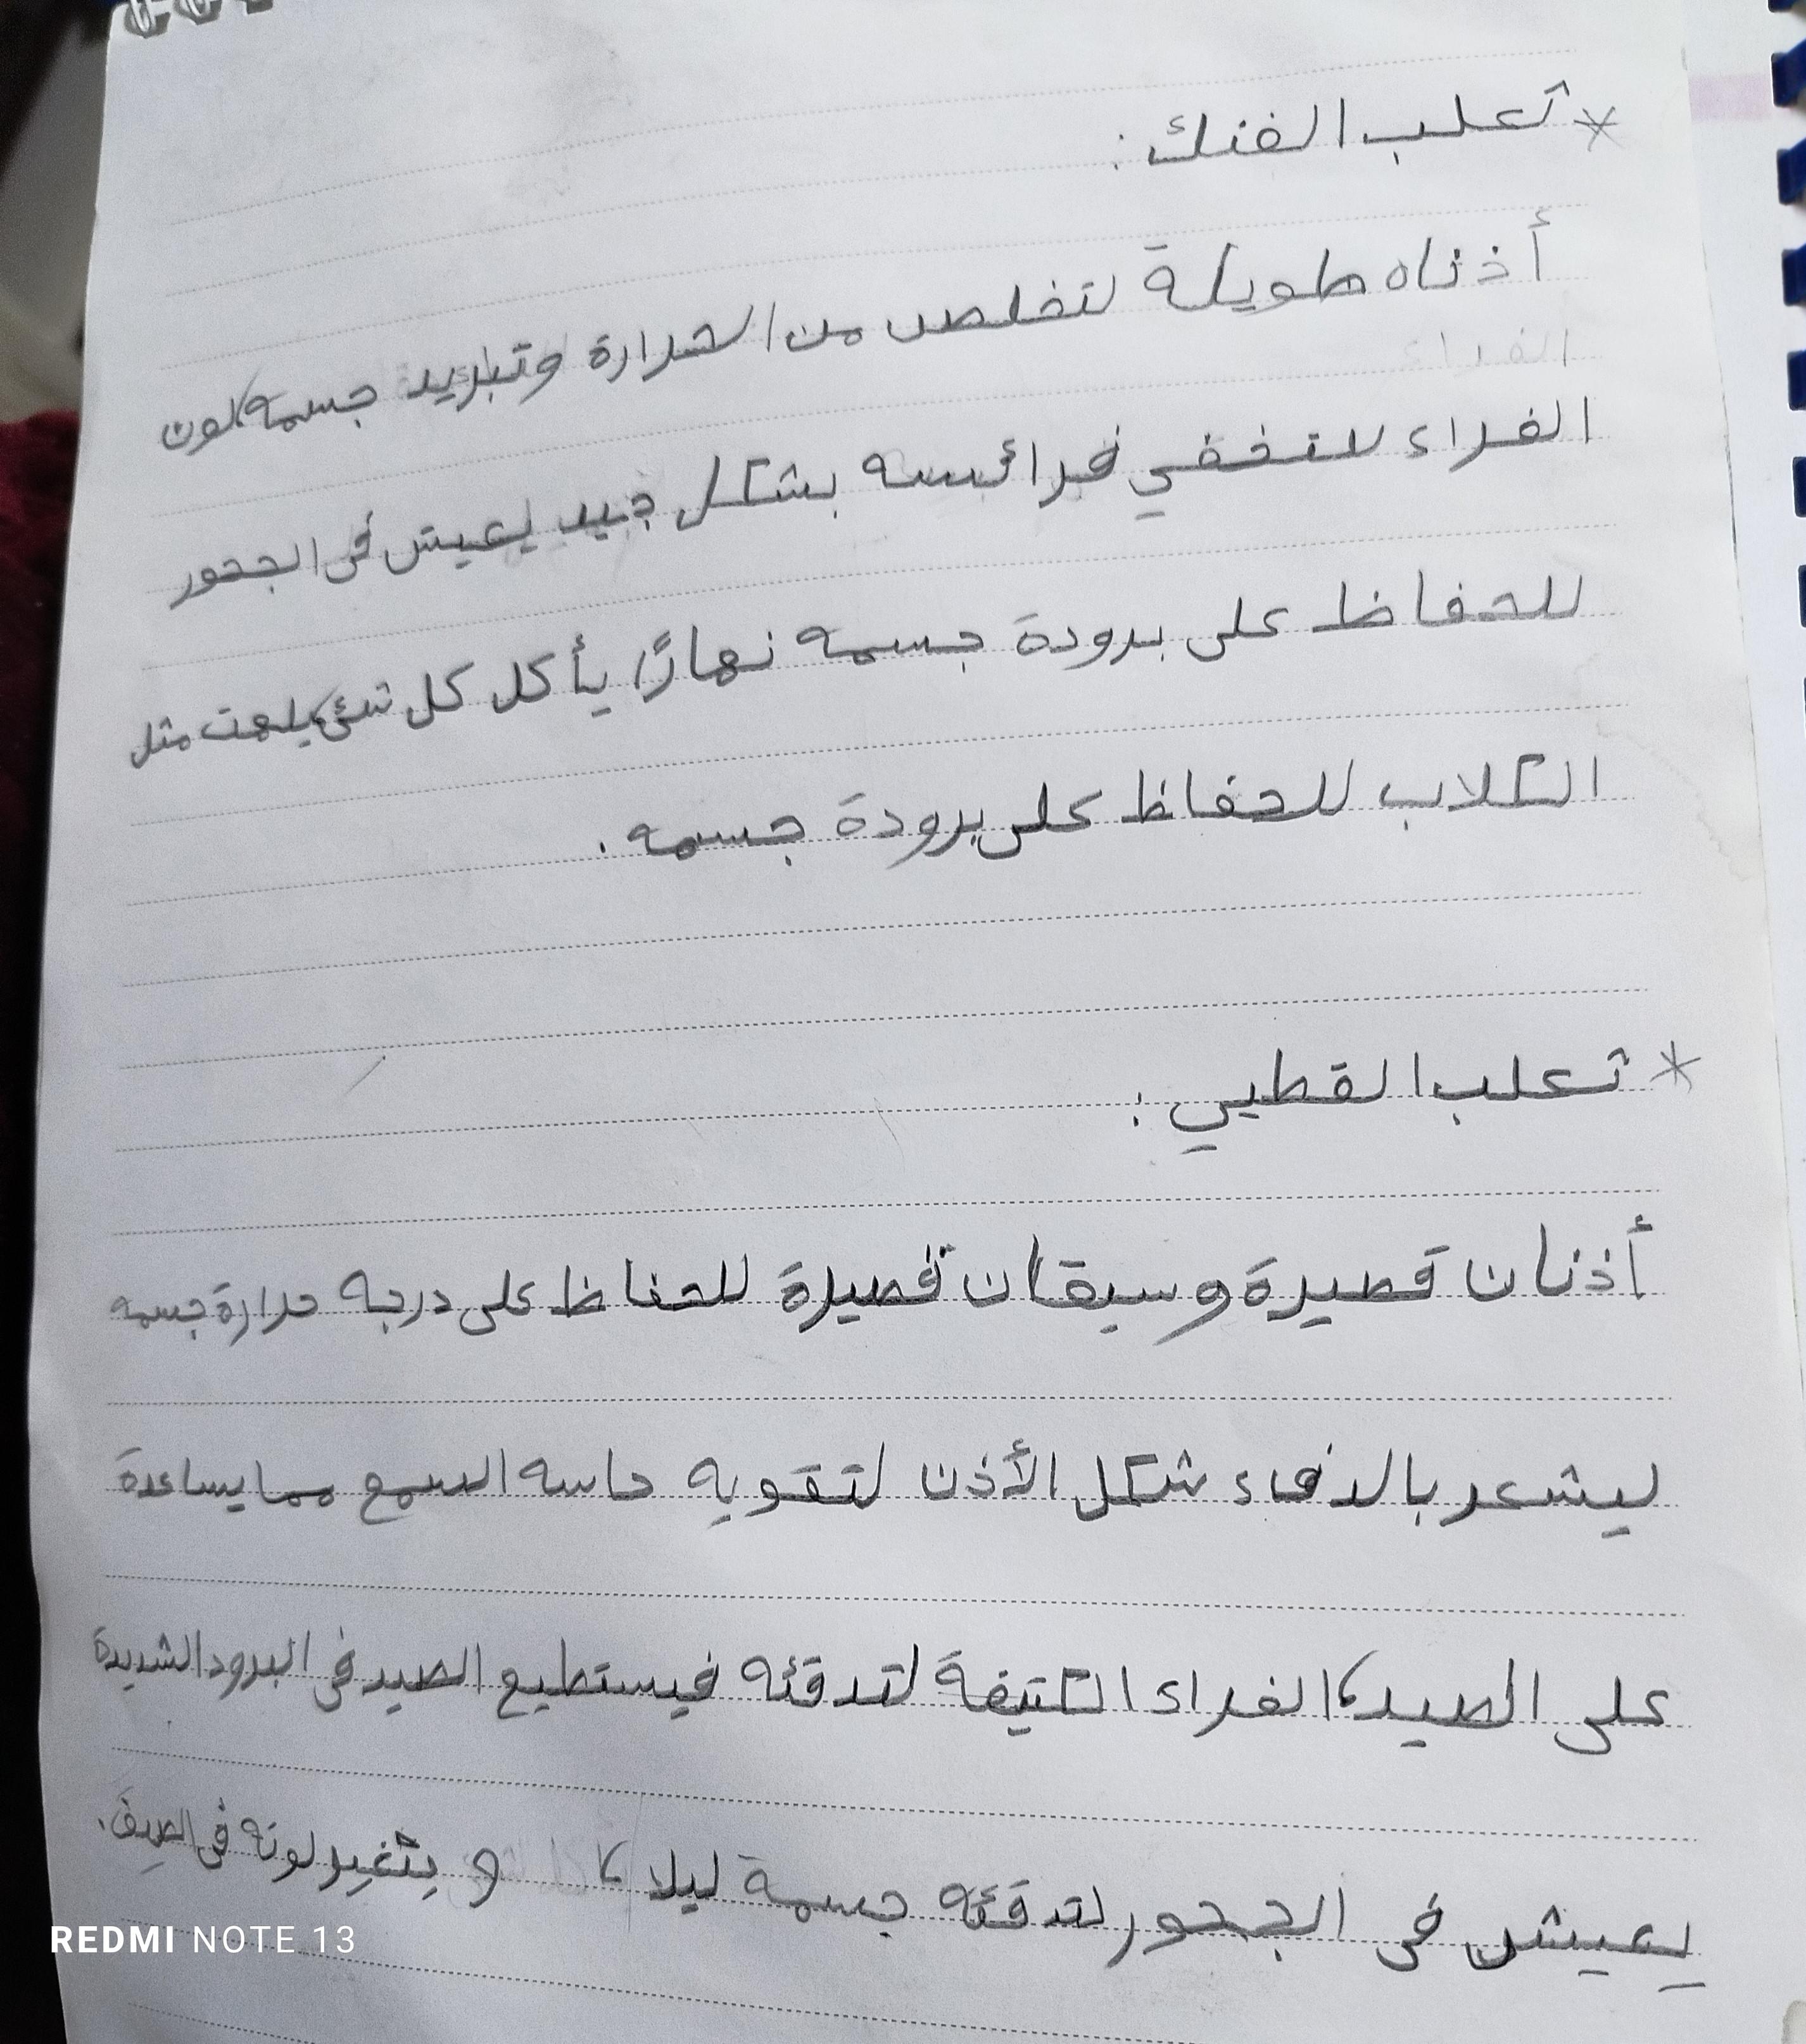 * تعلب الفنك :
أذناه طويلة لتخلص من الحرارة وتبريد جسمه، لون
الفراء لتخفي فرائسه بشكل جيد يعيش في الجحور
للحفاظ على برودة جسمه نهارًا يأكل كل شئ، يلهت مثل
الكلاب للحفاظ على برودة جسمه .
* تعلب القطبي :
أذنان قصيرة وسيقان قصيرة للحفاظ على درجه حرارة جسمه
ليشعر بالدفء شكل الأذن لتقويه حاسه السمع مما يساعدة
على الصيد، الفراء الكتيفة لتدفئه فيستطيع الصيد في البرود الشديدة
يعيش في الجحور لتدفئه جسمة ليلا، و يتغير لونه في الصيف.
REDMI NOTE 13